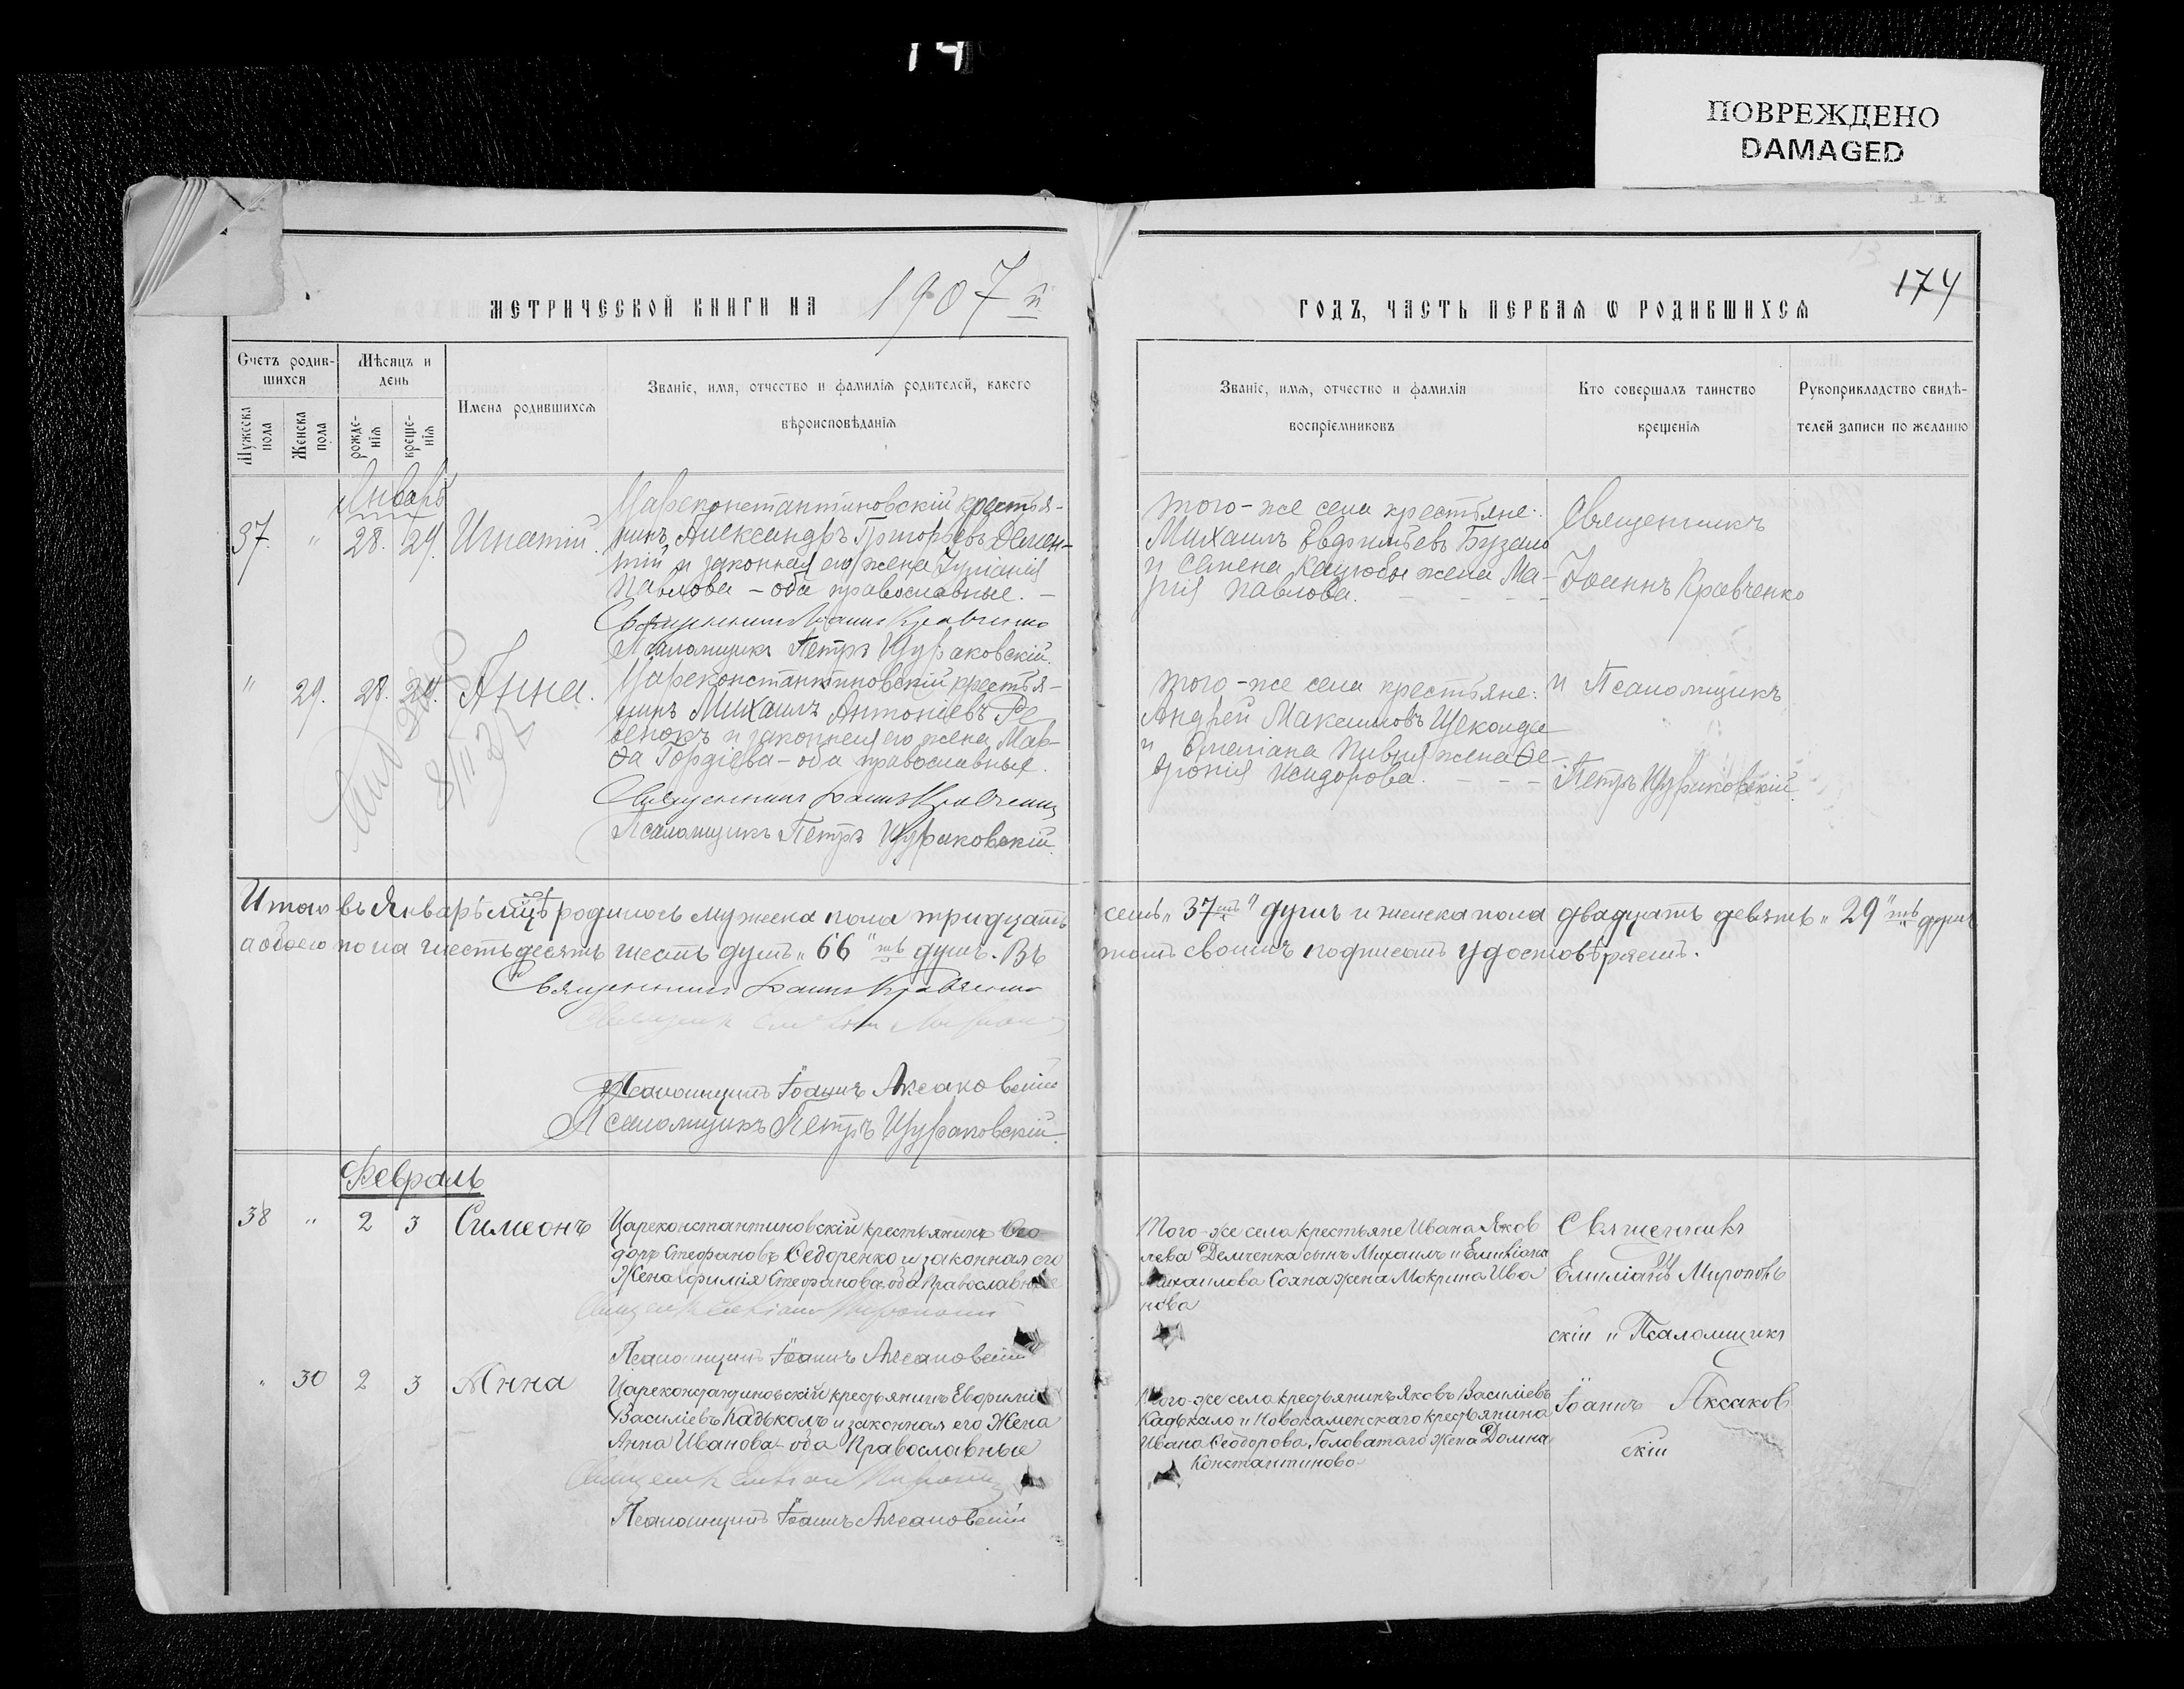 14
ПОВРЕЖДЕНО
DAMAGED
МЕТРИЧЕСКОЙ КНИГИ НА 1907 й
ГОДЪ, ЧАСТЬ ПЕРВАЯ Ѡ РОДИВШИХСЯ
174
Счетъ родив-
шихся
Мѣсяцъ и
день
Имена родившихся
Званіе, имя, отчество и фамилія родителей, какого
вѣроисповѣданія
Званіе, имя, отчество и фамилія
воспріемниковъ
Кто совершалъ таинство
крещенія
Рукоприкладство свидѣ-
телей записи по желанію
Мужеска
пола
Женска
пола
рожде-
нія
креще-
нія
Январь
37. " 28. 29. Игнатій.
Цареконстантиновскій крестья-
нинъ Александръ Григорьевъ Демен-
тій и законная его жена Іуліанія
Павлова – оба православные. –
Священникъ Іоаннъ Кравченко
Псаломщикъ Петръ Щураковскій.
того-же села крестьяне:
Михаилъ Евфиміевъ Бузело
и Семена Кацюбы жена Ма-
рія Павлова.
Священникъ
Іоаннъ Кравченко
" 29. 28. 29. Анна.
Цареконстантиновскій крестья-
нинъ Михаилъ Антоніевъ Ре
венокъ и законная его жена Мар-
ѳа Гордіева – оба православные.
Священникъ Іоаннъ Кравченко
Псаломщикъ Петръ Щураковскій.
того-же села крестьяне:
Андрей Максимовъ
и Емеліана Пивня жена Ѳе-
вронія Исидорова.
и Псаломщикъ
Петръ Щураковскій.
Итого въ Январѣ мцѣ родилось мужеска пола тридцать семь „37" душъ и женска пола двадцать девять „29" душъ
а обоего пола шестьдесятъ шесть душъ „66" душъ. Въ томъ своимъ подписомъ удостовѣряемъ.
Священникъ Іоаннъ Кравченко
Псаломщикъ Іоаннъ Аксаковскій
Псаломщикъ Петръ Щураковскій.
Февраль
38 " 2 3 Симеонъ
Цареконстантиновскій крестьянинъ Ѳео
доръ Стефановъ Ѳедоренко и законная его
Жена Ефимія Стефанова оба Православные
Псаломщикъ Іоаннъ Аксаковскій
Того-же села крестьяне Ивана Яков
лева Демченка сынъ Михаилъ и Емиліана
Михаилова Сохна жена Макрина Ива
нова
Священникъ
Емиліанъ Мироновъ
скій и Псаломщикъ
" 30 2 3 Анна
Цареконстантиновскій крестьянинъ Евфимій
Василіевъ Кадькалъ и законная его Жена
Анна Иванова оба Православные
Псаломщикъ Іоаннъ Аксаковскій
Того-же села крестьянинъ Яковъ Василіевъ
Кадькало и Новокаменскаго крестьянина
Ивана Ѳеодорова Головатаго Жена Домна
Константинова
Іоаннъ Аксаков
скій